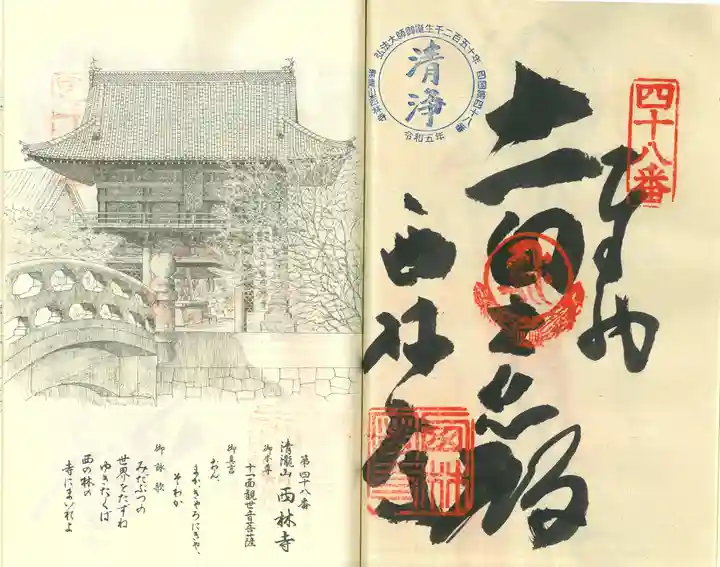 四十八番
奉納
西林寺
弘法大師御誕生千二百五十年
四国第四十八番
清浄
清瀧山西林寺
令和五年
第四十八番
清瀧山 西林寺
御本尊
十一面観世音菩薩
御真言
おん、
まかきゃろにきゃ、
そわか
御詠歌
みだぶつの
世界をたずね
ゆきたくば
西の林の
寺にまいれよ